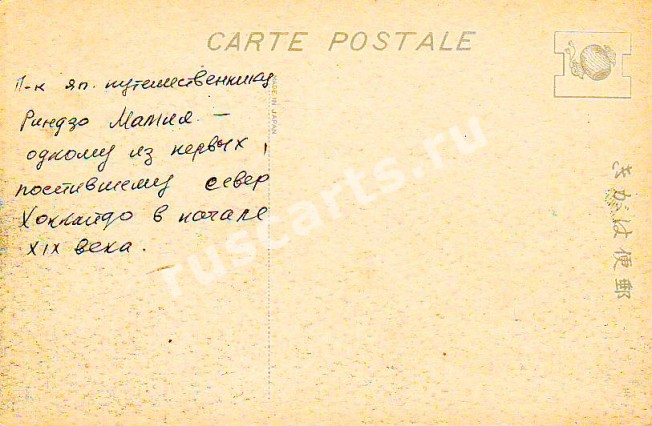 CARTE POSTALE
П-к яп. путешественнику
Риндзо Мамия –
одному из первых,
посетившему север
Хоккайдо в начале
XIX века.
MADE IN JAPAN
きがは便郵
ruscarts.ru